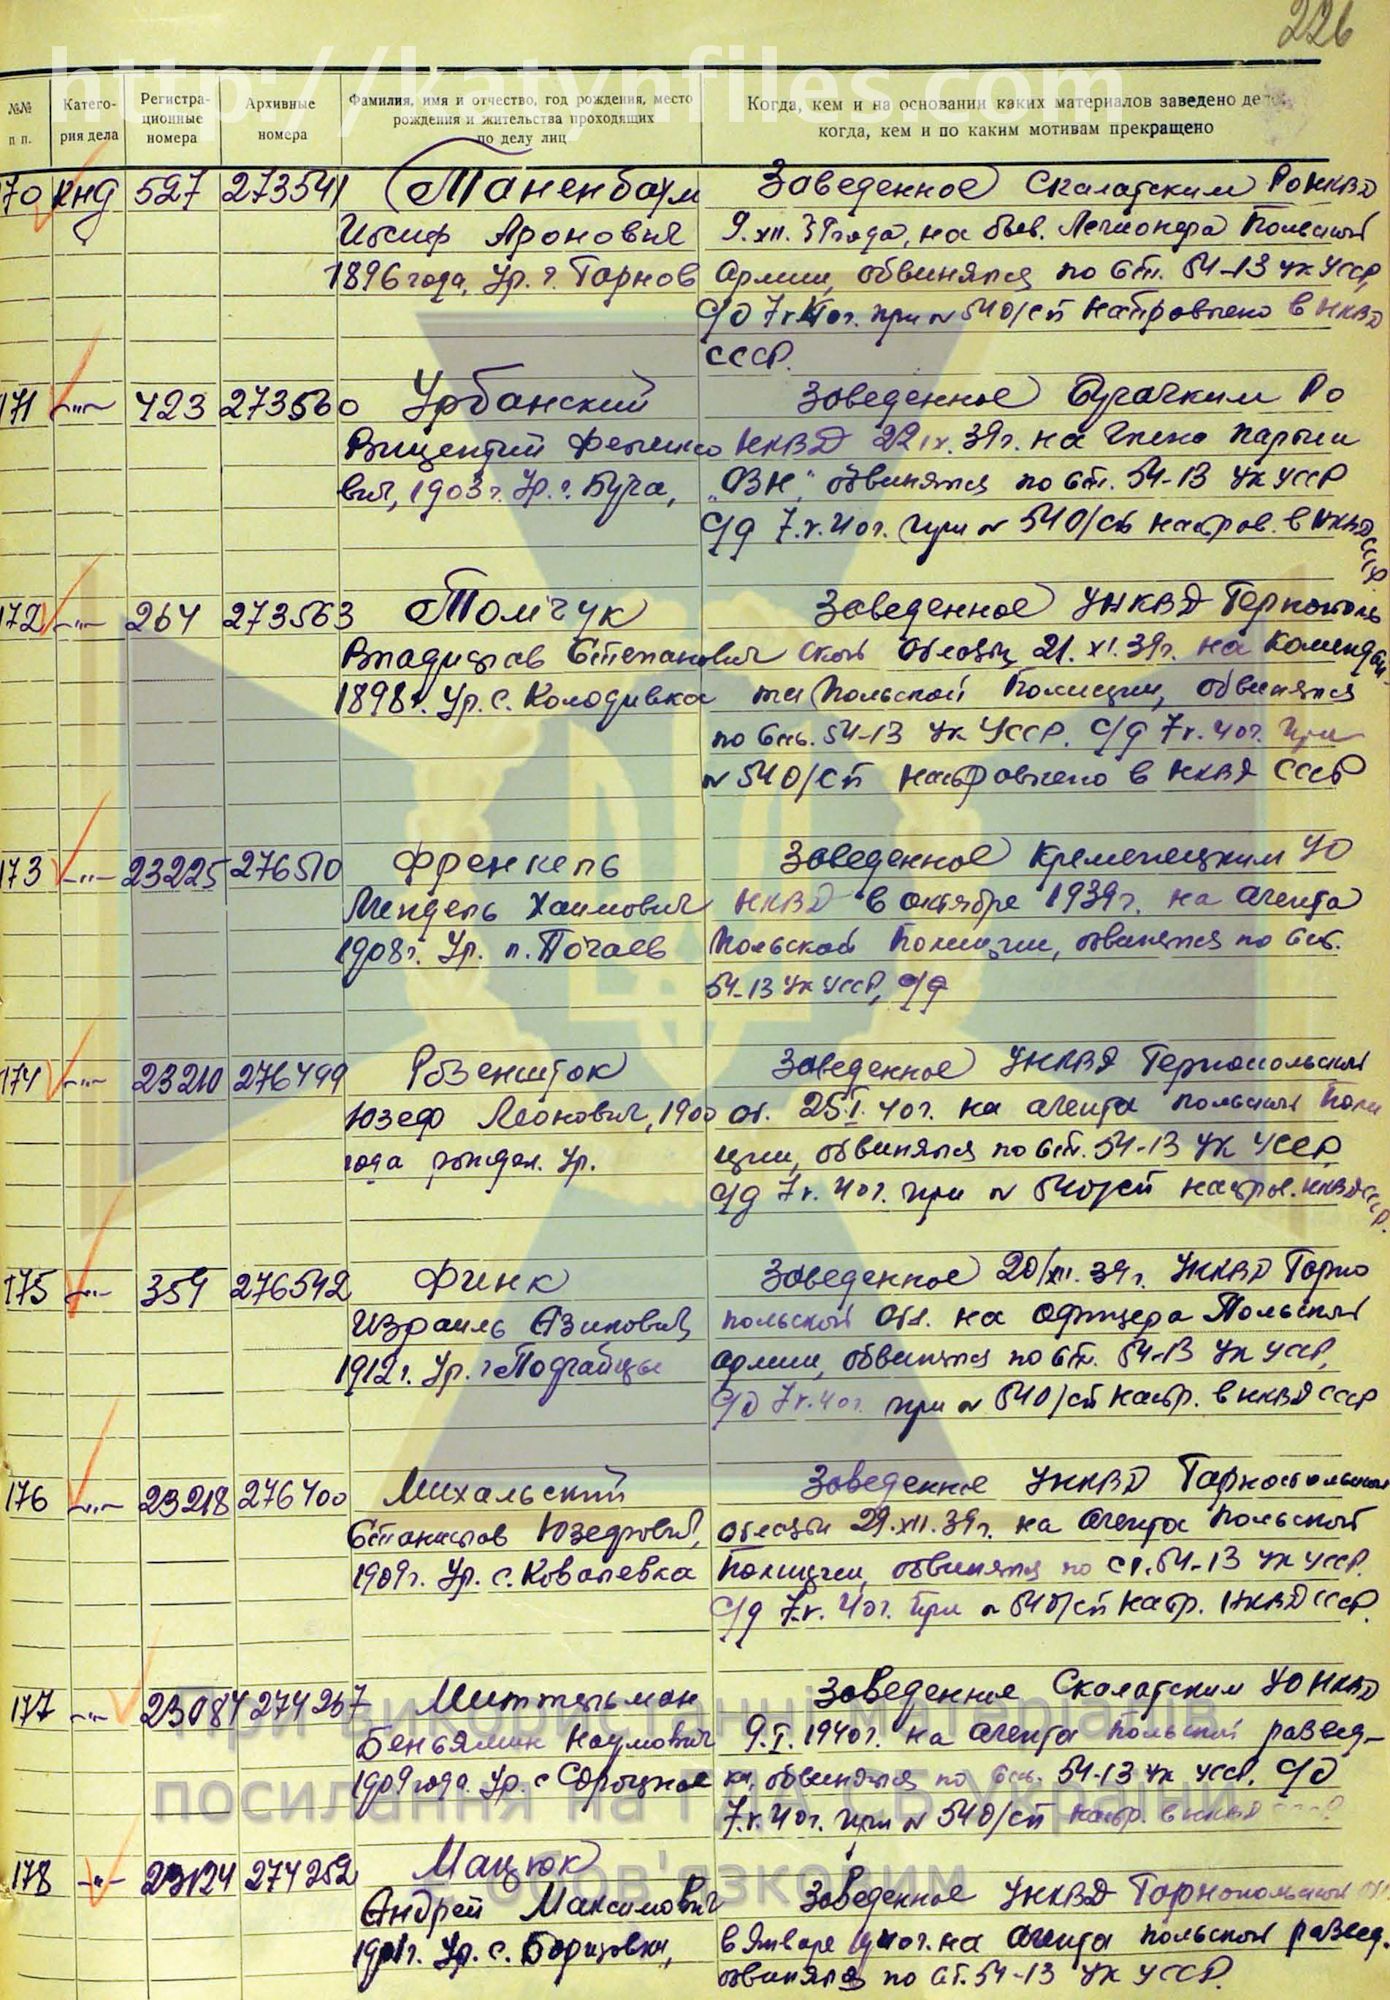 226
http://katynfiles.com
№№ п п.
Катего-рия дела
Регистра-ционные номера
Архивные номера
Фамилия, имя и отчество, год рождения, место рождения и жительства проходящих по делу лиц
Когда, кем и на основании каких материалов заведено дело, когда, кем и по каким мотивам прекращено
170 кнд 527 273541 Таненбаум Заведенное Скалатским РОНКВД
Иосиф Аронович 9.XII.39 года, на быв. Легионера Польской
1896 года, Ур. г. Тарнов Армии, обвинялся по ст. 54-13 УК УССР,
с/д 7.V.40г. при № 540/сп направлено в НКВД
СССР.
171 -"- 723 273560 Урбанский Заведенное Бучачким Ро
Вицентий Феликсо НКВД 22.IX.39г. на члена партии
вич, 1903г. Ур. г. Буча, „ОЗН", обвинялся по ст. 54-13 УК УССР
с/д 7.V.40г. при № 540/сп направ. в НКВД СССР
172 -"- 264 273563 Томчук Заведенное УНКВД Тернополь
Владислав Степанович ской области 21.XI.39г. на Комендан-
1898г. Ур. с. Колодивка та Польской Полиции, обвинялся
по ст. 54-13 УК УССР. с/д 7.V.40г. При
№ 540/сп направлено в НКВД СССР
173 -"- 23225 276510 Френкель Заведенное Кременецким УО
Мендель Хаимович НКВД в октябре 1939г. на агента
1908г. Ур. п. Почаев Польской Полиции, обвинялся по ст.
54-13 УК УССР, с/д
174 -"- 23210 276499 Розеншток Заведенное УНКВД Тернопольской
Юзеф Леонович, 1900 об. 25.I.40г. на агента польской Поли
года рожден. Ур. ции, обвинялся по ст. 54-13 УК УССР
с/д 7.V.40г. при № 540/сп направ. НКВД СССР.
175 -"- 359 276592 Финк Заведенное 20/XII.39г. УНКВД Тарно
Израиль Азикович, польской обл. на Офицера Польской
1912г. Ур. г Подгайцы армии, обвинялся по ст. 54-13 УК УССР,
с/д 7.V.40г. при № 540/сп напр. в НКВД СССР
176 -"- 23218 276400 Михальский Заведенное УНКВД Тарнопольской
Станислав Юзефович, области 29.XII.39г. на агента Польской
1909г. Ур. с. Ковалевка Полиции, обвинялся по ст. 54-13 УК УССР.
с/д 7.V.40г. При № 540/сп напр. НКВД СССР.
177 -"- 23084 274267 Миттельман Заведенное Скалатским УО НКВД
Беньямин Наумович 9.I.1940г. на агента польской развед-
1909 года. Ур. с Сороцкое ки, обвинялся по ст. 54-13 УК УССР. с/д
7.V.40г. при № 540/сп напр. в НКВД СССР
178 -"- 23124 274252 Мацюк
Андрей Максимович Заведенное УНКВД Тарнопольской
1901г. Ур. с. в Январе 1940г. на агента польской развед.
обвинялся по ст. 54-13 УК УССР.
При використанні матеріалів
посилання на ГДА СБ України
є обов'язковим